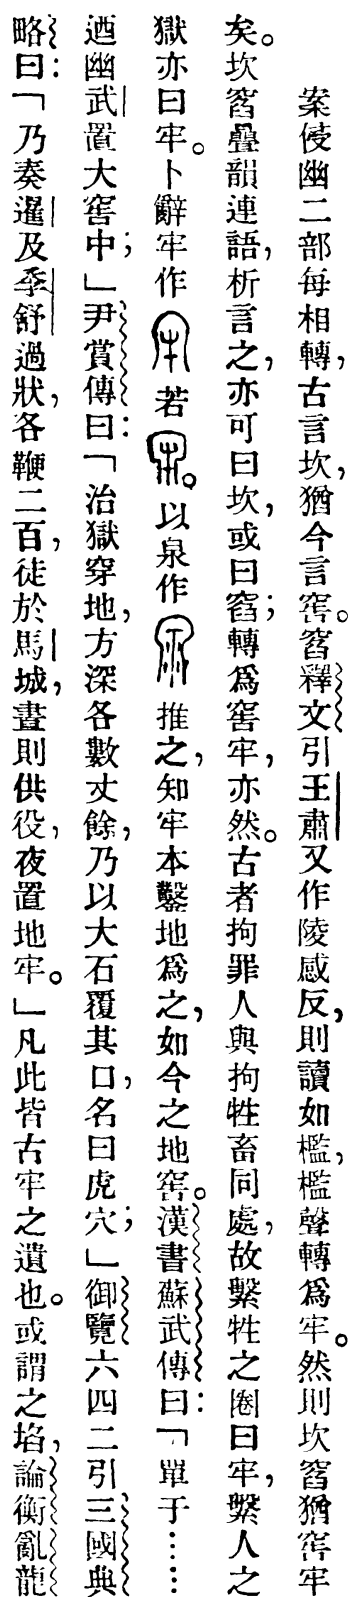 案侵幽二部每相轉，古言坎，猶今言窖。窞釋文引王肅又作陵感反，則讀如檻，檻聲轉爲牢。然則坎窞猶窖牢
矣。坎窞疊韻連語，析言之，亦可曰坎，或曰窞；轉爲窖牢，亦然。古者拘罪人與拘牲畜同處，故繫牲之圈曰牢，繫人之
獄亦曰牢。卜辭牢作若。以泉作推之，知牢本鑿地爲之，如今之地窖。漢書蘇武傳曰：「單于……
迺幽武置大窖中；」尹賞傳曰：「治獄穿地，方深各數丈餘，乃以大石覆其口，名曰虎穴；」御覽六四二引三國典
略曰：「乃奏暹及季舒過狀，各鞭二百，徒於馬城，晝則供役，夜置地牢。」凡此皆古牢之遺也。或謂之埳，論衡亂龍